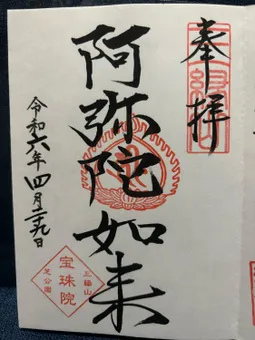 奉拝
阿弥陀如来
令和六年四月二十九日
三縁山
宝珠院
芝公園